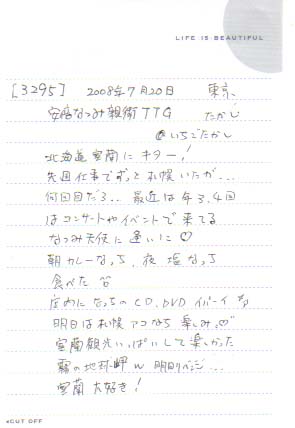 LIFE IS BEAUTIFUL
[3295] 2008年7月20日 東京、
安倍なつみ親衛隊TTG たかし
@いちごたかし
北海道室蘭にキター!
先週仕事でずっと札幌いたが...
何回目だろ... 最近は年3,4回
はコンサートやイベントで来てる
なつみ天使に逢いに♡
朝カレーなっち、夜 塩なっち
食べた
店内になっちのCD、DVD イパーイ
明日は札幌アコなち 楽しみ♡
室蘭観光いっぱいして楽しかった
霧の地球岬w 明日リベンジ...
室蘭 大好き!
CUT OFF